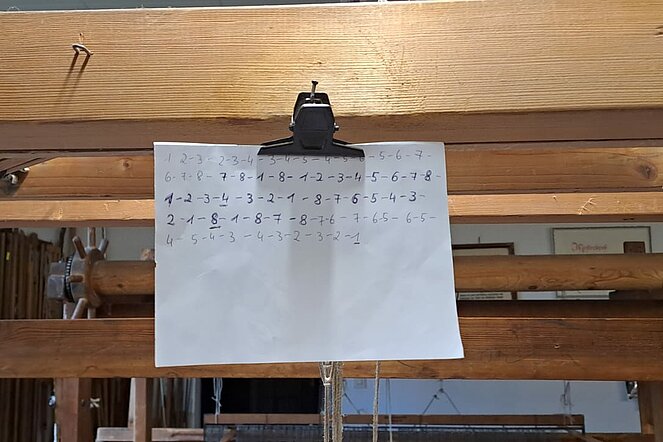 1 2-3-2-3-4-3-4-5-4-5-6-5-6-7-
6-7-8-7-8-1-8-1-2-3-4-5-6-7-8-
1-2-3-4-3-2-1-8-7-6-5-4-3-
2-1-8-1-8-7-8-7-6-7-6-5-6-5-
4-5-4-3-4-3-2-3-2-1